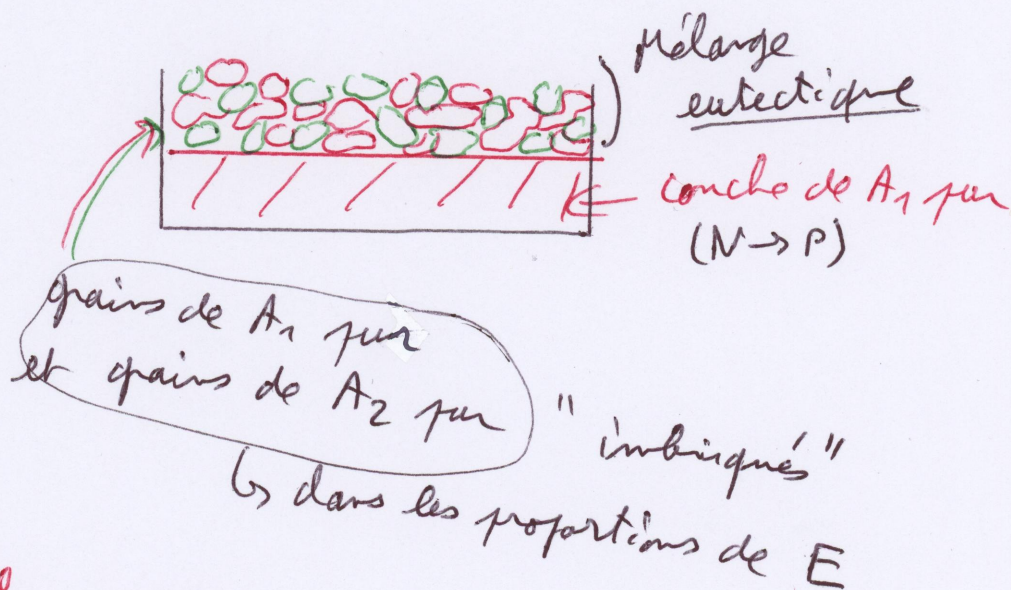 Mélange
eutectique
couche de A1 pur
(N → P)
grains de A1 pur
et grains de A2 pur
" imbriqués "
↳ dans les proportions de E